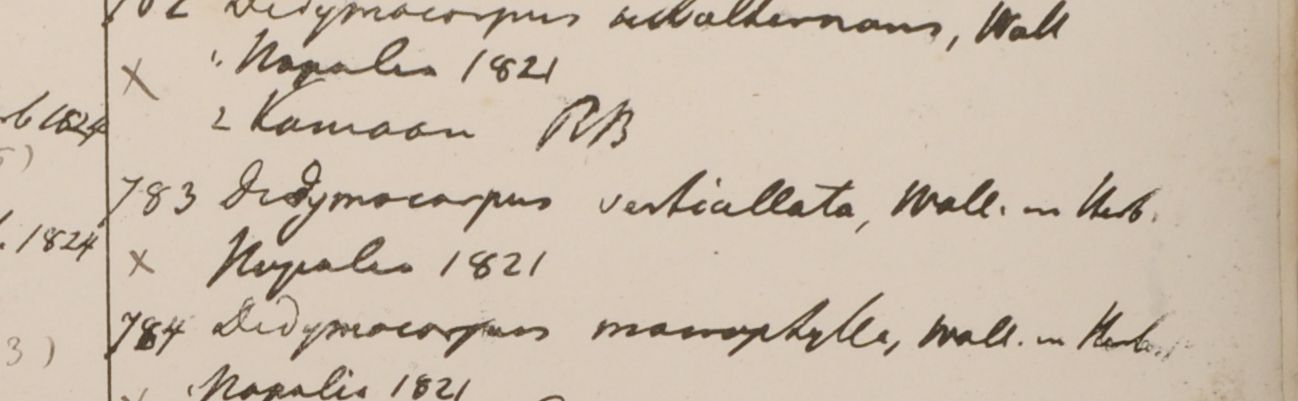 782 Didymocarpus subalternans, Wall
1. Napalia 1821
b 1824
2 Kamaon RB
783 Didymocarpus verticillata, Wall. in Herb.
1824
x Napalia 1821
784 Didymocarpus macrophylla, Wall. in Herb.
3)
Napalia 1821